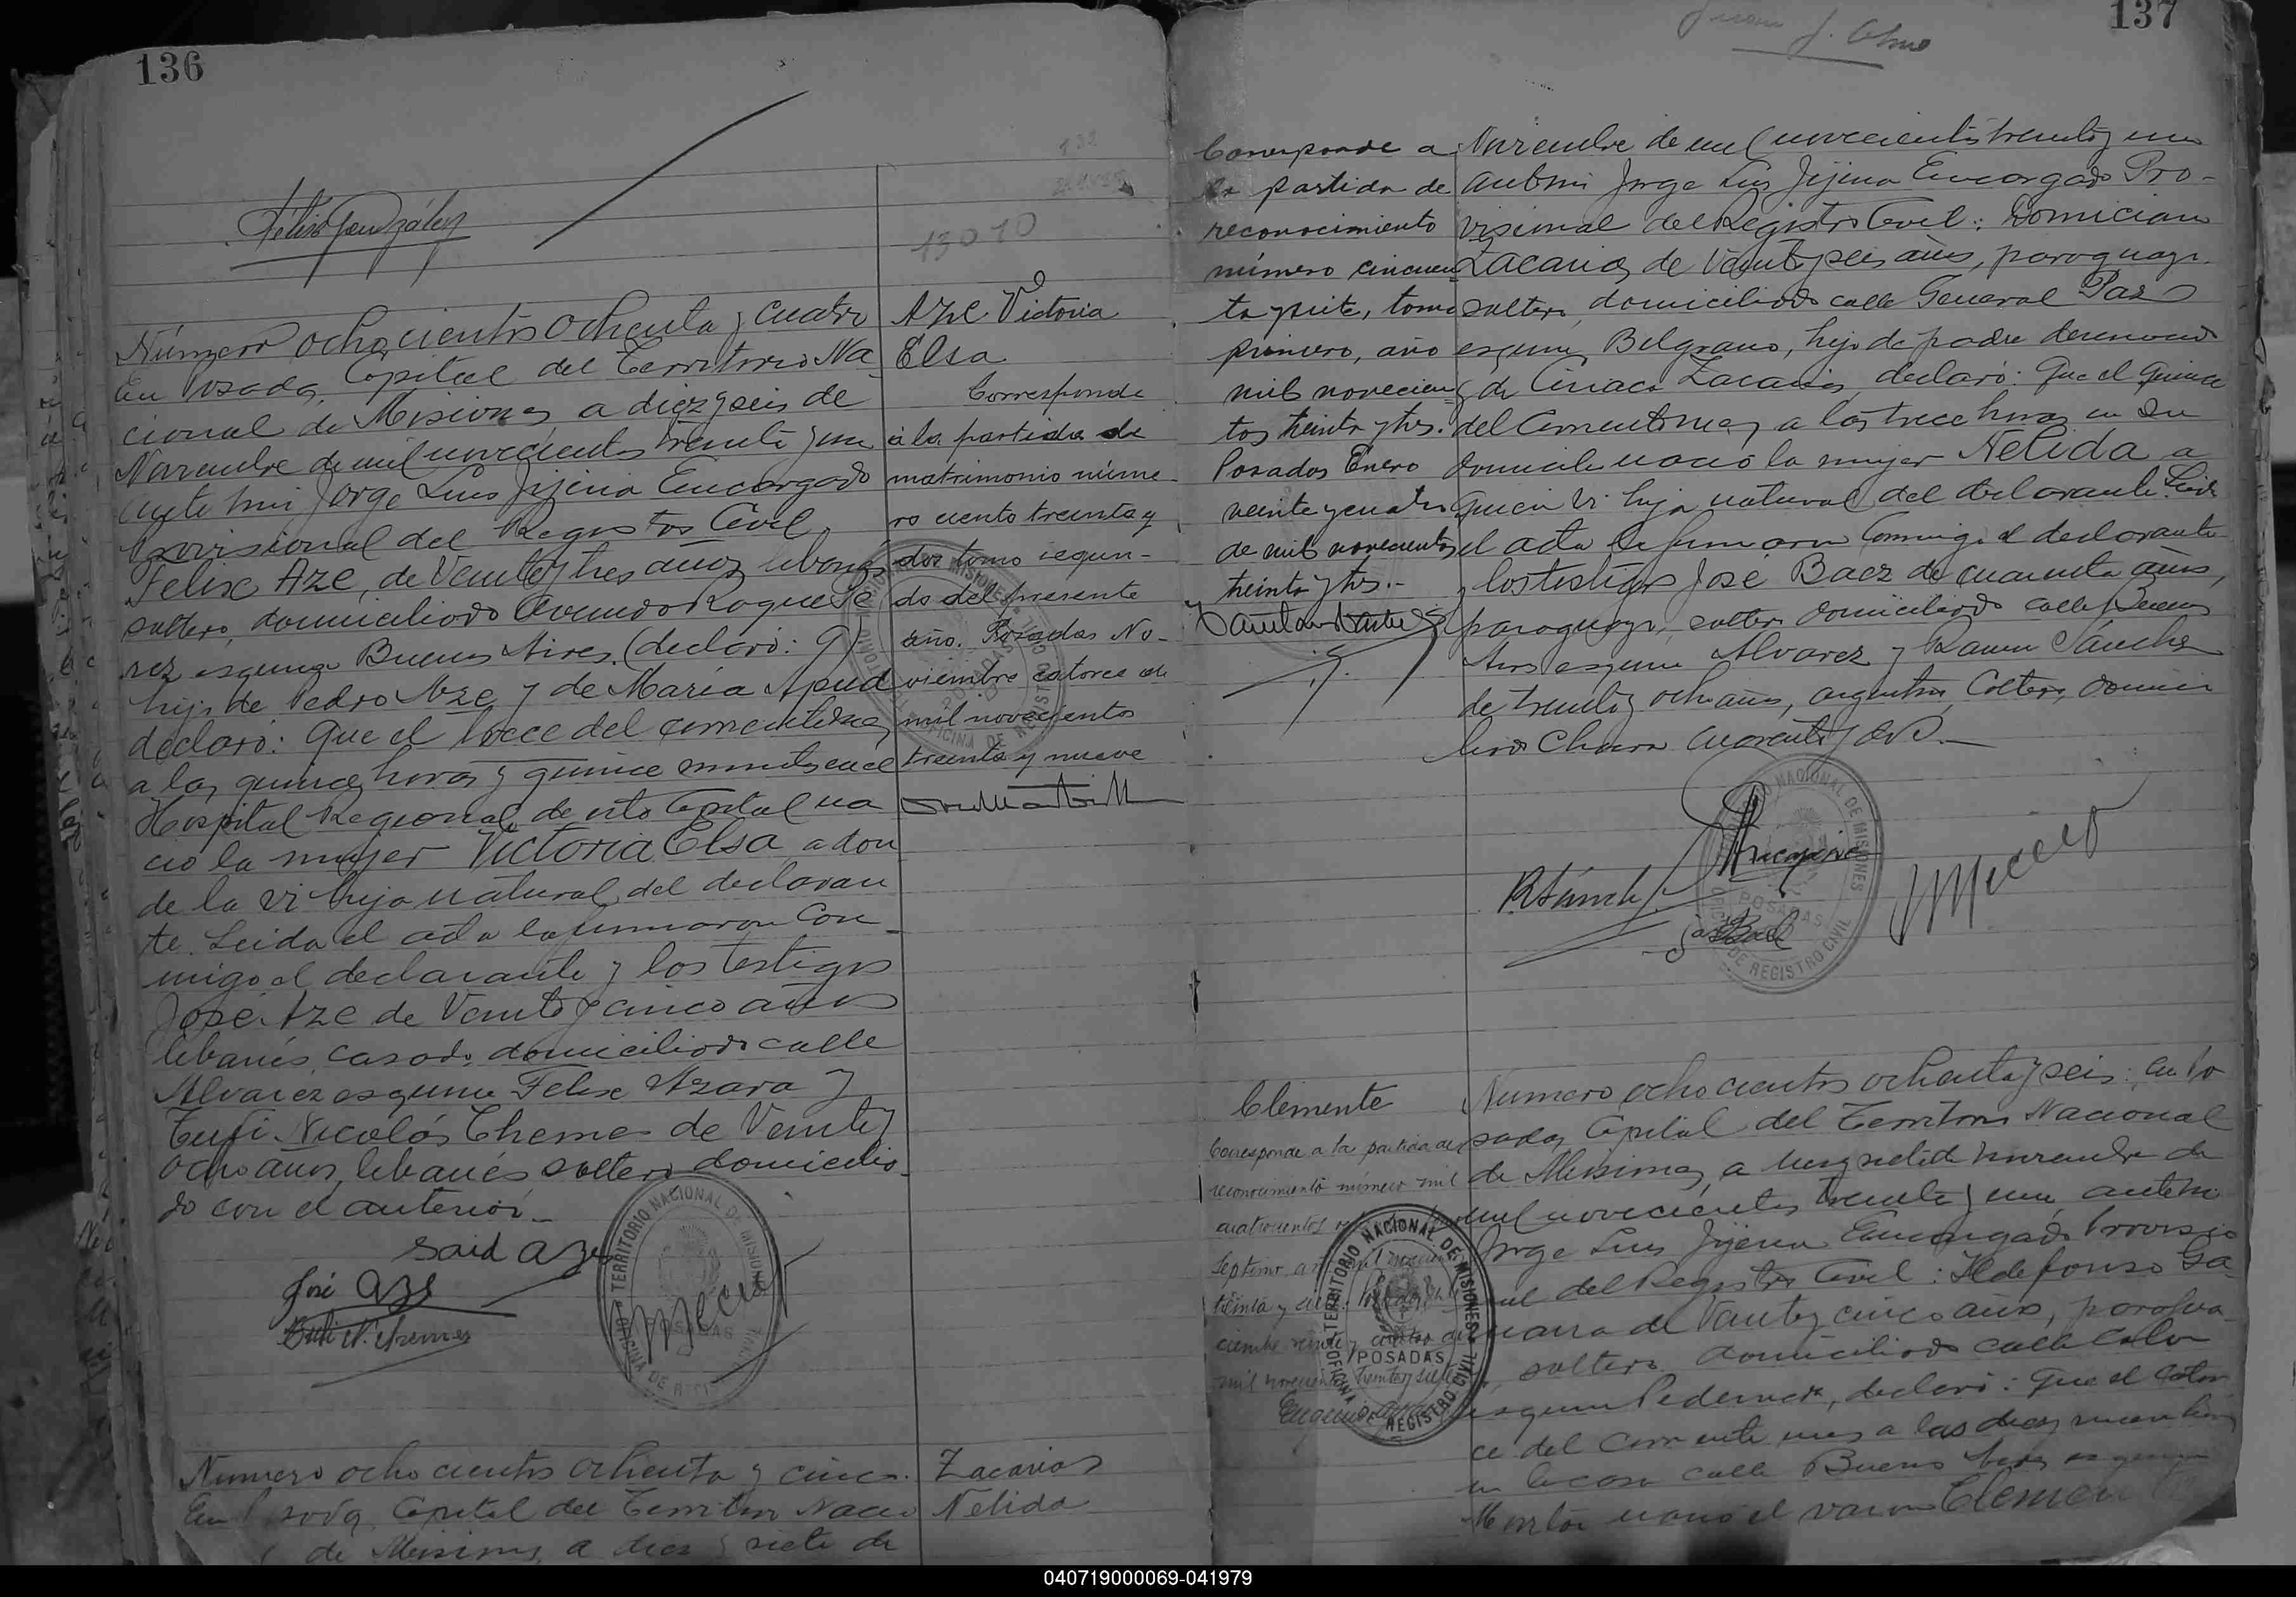 136
Félix González
13010
Número ochocientos ochenta y cuatro
En Posadas, Capital del Territorio Na
cional de Misiones, a diez y seis de
Noviembre de mil novecientos treinta y uno
ante mi Jorge Luis Jijena Encargado
Provisional del Registro Civil,
Felix Aze, de Veinte y tres años libanés
soltero, domiciliado Avenida Roque Pé
rez esquina Buenos Aires. (declaró: q)
hijo de Pedro Aze y de María Apud
declaró: Que el trece del corriente mes
a las quince horas y quince minutos en el
Hospital Regional de esta Capital na
ció la mujer Victoria Elsa a don
de la vi hija natural del declaran
te. Leida el acta la firmaron Con_
migo el declarante y los testigos
José Aze de Veinte y cinco años
libanés, casado, domiciliado calle
Alvarez esquina Felix Azara y
Tufi Nicolás Chemes de Veinte y
ocho años, libanés soltero domicilia_
do con el anterior._
said aze
José Aze
Tufi N. Chemes
TERRITORIO NACIONAL DE MISIONES
POSADAS
OFICINA DE REGISTRO CIVIL
Aze Victoria
Elsa
Corresponde
a la partida de
matrimonio núme_
ro ciento treinta y
dos tomo segun-
do del presente
año. Posadas No-
viembre catorce de
mil novecientos
treinta y nueve
Numero ochocientos ochenta y cinco.
En Posadas Capital del Territorio Nacio
de Misiones, a diez y siete de
Zacarias
Nelida
137
Juan J. Olmo
Corresponde a
la partida de
reconocimiento
número cincuen
ta y siete, tomo
primero, año
mil novecien
tos treinta y tres.
Posadas Enero
veinte y cuatro
de mil novecientos
treinta y tres.-
Noviembre de mil novecientos treinta y uno
ante mi Jorge Luis Jijena Encargado Pro-
visional del Registro Civil: Domiciano
Zacarias de Veinte y seis años, paraguayo
soltero, domiciliado calle General Paz
esquina Belgrano, hijo de padre desconocido
y de Ciriaca Zacarias, declaró: Que el quince
del corriente mes a las trece horas en su
domicilio nació la mujer Nelida a
quien vi hija natural del declarante. Leida
el acta la firmaron Conmigo el declarante
y los testigos José Baez de cuarenta años,
paraguayo, soltero domiciliado calle Buenos
Aires esquina Alvarez y Ramon Sánchez
de treinta y ocho años, argentino, soltero, domici
liado Chacra Cuarenta y dos._
RSánchez
José Baez
TERRITORIO NACIONAL DE MISIONES
POSADAS
OFICINA DE REGISTRO CIVIL
Clemente
Corresponde a la partida de
reconocimiento número mil
cuatrocientos
septimo
Numero ochocientos ochenta y seis: en Po
sadas, Capital del Territorio Nacional
de Misiones, a diez y siete de Noviembre de
mil novecientos treinta y uno, ante mi
Jorge Luis Jijena Encargado Provisio
nal del Registro Civil: Ildefonso Ga
de Veinte y cinco años, paragua
soltero domiciliado calle Colon
esquina Pedernera, declaró: Que el cator
ce del corriente mes a las diez
en la casa calle Buenos Aires esquina
nació el varon Clemente
TERRITORIO NACIONAL DE MISIONES
POSADAS
OFICINA DE REGISTRO CIVIL
040719000069-041979